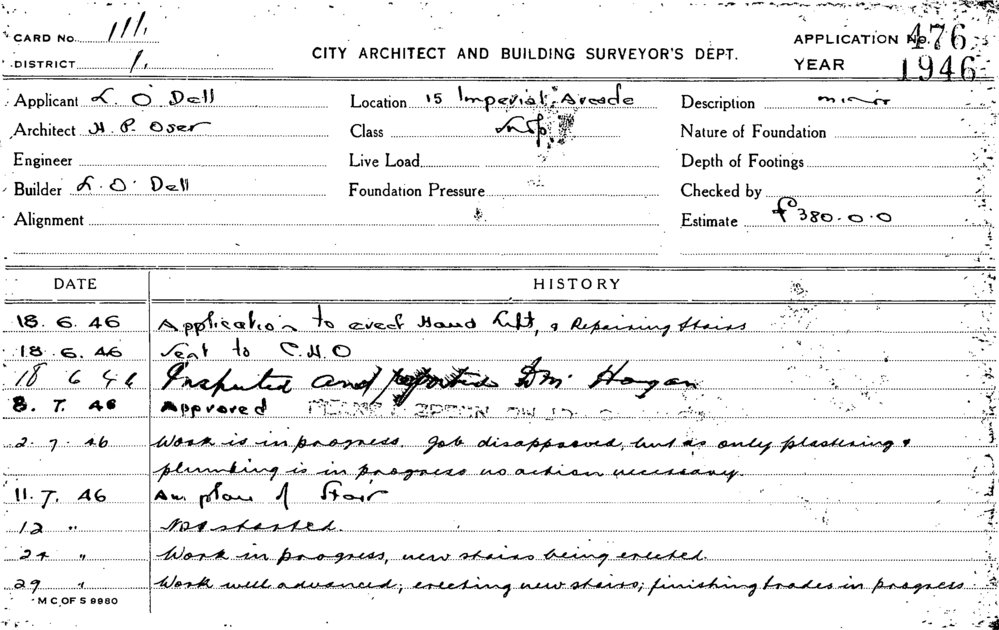 CARD No. 111.
DISTRICT 1.
CITY ARCHITECT AND BUILDING SURVEYOR'S DEPT.
APPLICATION No. 476
YEAR 1946
Applicant L. O'Dell Location 15 Imperial Arcade Description minor
Architect H. P. Oser Class Nature of Foundation
Engineer Live Load Depth of Footings
Builder L. O'Dell Foundation Pressure Checked by
Alignment Estimate £380.0.0
DATE HISTORY
18. 6. 46 Application to erect Hand Lift, & Repairing Stairs
18. 6. 46 Sent to C.H.O
18 6 46 Inspected and reported Hogan
8. 7. 46 Approved
2. 7. 46 Work is in progress. Job disapproved, but as only plastering &
plumbing is in progress no action necessary.
11. 7. 46 Am plan of Stair
12 " Not started.
24 " Work in progress, new stairs being erected.
29 " Work well advanced; erecting new stairs; finishing trades in progress
M C OF S 9980